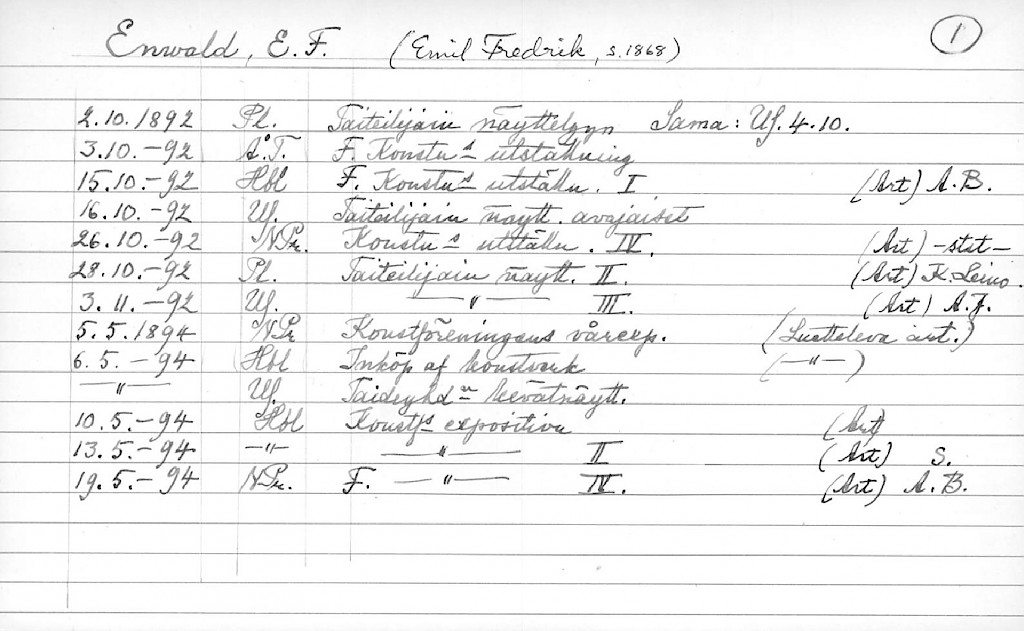 Enwald, E. F. (Emil Fredrik, s. 1868) 1
2.10.1892 Pl. Taiteilijain näyttelyyn Sama: Uf. 4.10.
3.10.-92 Å.T. F. Konstn:s utställning
15.10.-92 Hbl F. Konstn:s utställn. I (Art) A.B.
16.10.-92 Uf. Taiteilijain näytt. avajaiset
26.10.-92 N.Pr. Konstn:s utställn. IV. (Art) -stst-
28.10.-92 Pl. Taiteilijain näytt. II. (Art) K. Leino.
3.11.-92 Uf. —"— III. (Art) A.J.
5.5.1894 N.Pr Konstföreningens vårexp. (Luetteleva art.)
6.5.-94 Hbl Inköp af konstverk (—"—)
—"— Uf. Taideyhd:n kevätnäytt.
10.5.-94 Hbl Konstf:s exposition (Art)
13.5.-94 —"— —"— II (Art) S.
19.5.-94 N.Pr. F. —"— IV. (Art) A.B.